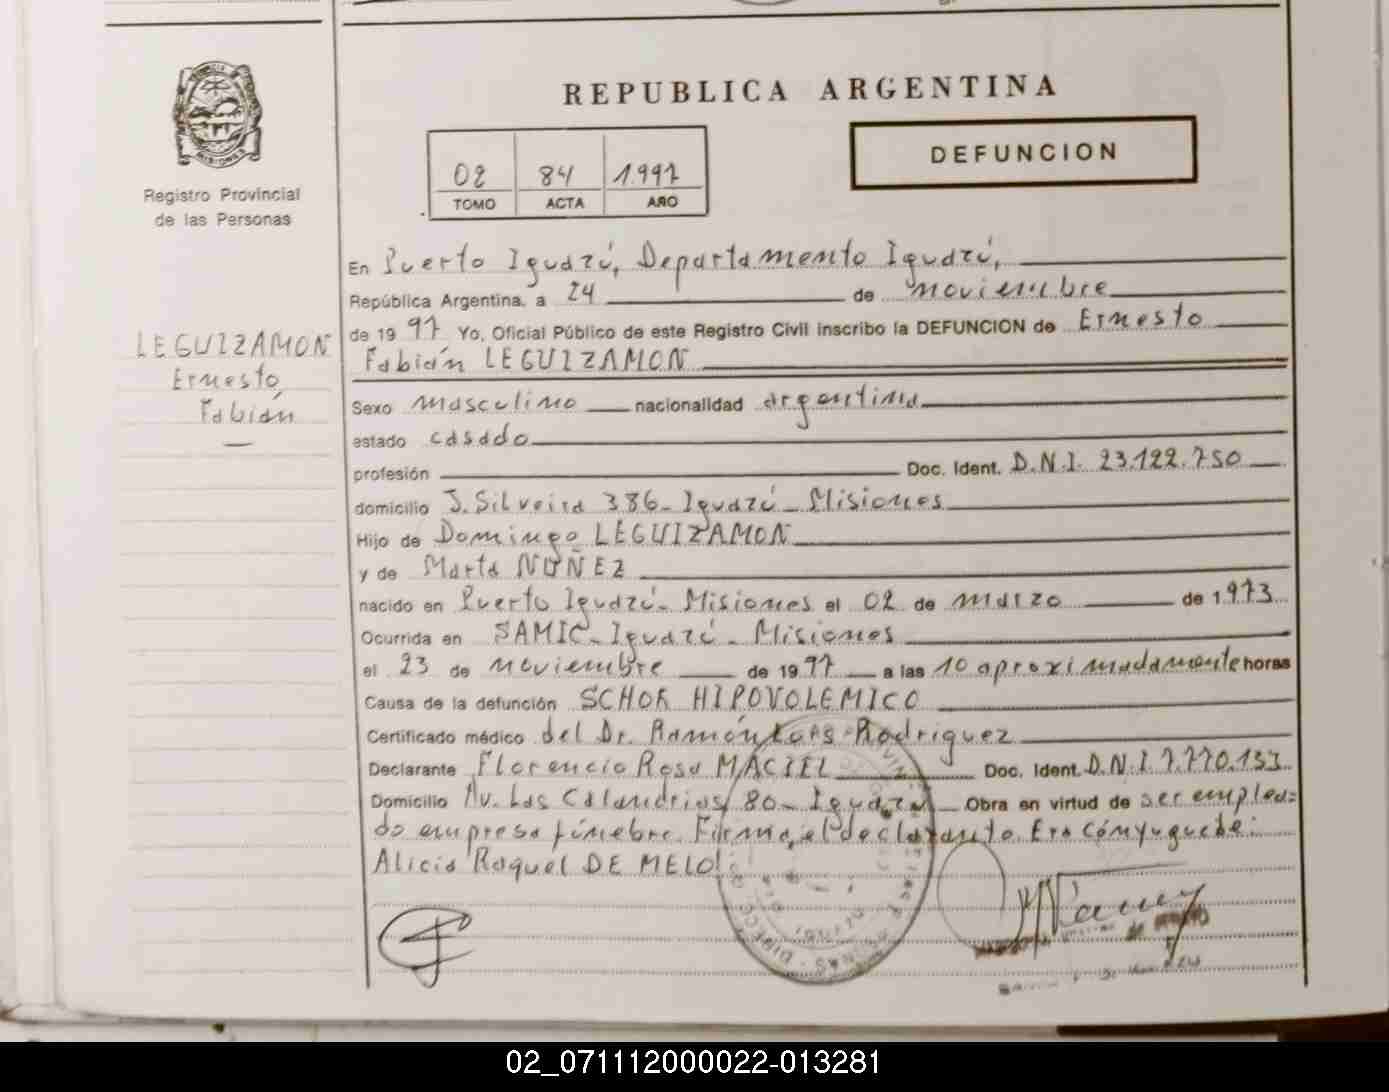 REPUBLICA ARGENTINA
DEFUNCION
02 84 1.997
TOMO ACTA AÑO
MISIONES
Registro Provincial
de las Personas
LEGUIZAMON
Ernesto
Fabián
En Puerto Iguazú, Departamento Iguazú,
República Argentina, a 24 de noviembre
de 1997 Yo, Oficial Público de este Registro Civil inscribo la DEFUNCION de Ernesto
Fabián LEGUIZAMON
Sexo masculino nacionalidad argentina
estado casado
profesión Doc. Ident. D.N.I. 23.122.750
domicilio J. Silveira 386- Iguazú- Misiones
Hijo de Domingo LEGUIZAMON
y de Marta NUÑEZ
nacido en Puerto Iguazú- Misiones el 02 de marzo de 1973
Ocurrida en SAMIC- Iguazú- Misiones
el 23 de noviembre de 1997 a las 10 aproximadamente horas
Causa de la defunción SCHOK HIPOVOLEMICO
Certificado médico del Dr. Ramón Luis Rodriguez
Declarante Florencio Rosa MACIEL Doc. Ident. D.N.I. 7.770.133
Domicilio Av. Las Calandrias 80- Iguazú Obra en virtud de ser emplea=
do empresa fúnebre. Firma, el declarante. Era cónyuge de:
Alicia Raquel DE MELO
02_071112000022-013281